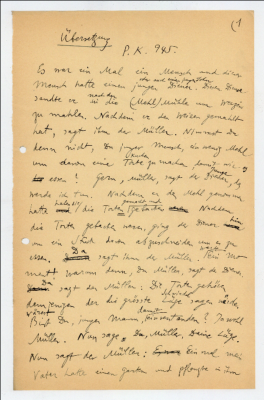 (1
Übersetzung
P. K. 945.
Es war ein Mal ein Mensch und dieser
Mensch hatte einen jungen Diener. Diesen Diener
sandte er in die (Mehl) Mühle um Weizen
zu mahlen. Nachdem er den Weizen gemahlen
hat, sagt ihm der Müller. Nimmst du
denn nicht, Du junger Mensch, ein wenig Mehl
um davon eine Torte zu machen, damit wir
esse? Gern, Müller, sagt der Diener, ich
werde es tun. Nachdem er das Mehl genommen
hatte die Torte gebacken Nachdem
die Torte gebacken war, ging der Diener hin
um ein Stück davon abzuschneiden um es zu
essen. sagt ihm der Müller.
warum denn, Du Müller, sagt der Diener.
sagt der Müller: Die Torte gehört
demjenigen der die grösste Lüge sagen werde
Bist Du, junger Mann, damit einverstanden? Jawohl
Müller. Nun sage, Du, Müller, Deine Lüge.
Nun sagt der Müller: Ein mal mein
Vater hatte einen Garten und pflanzte in ihm